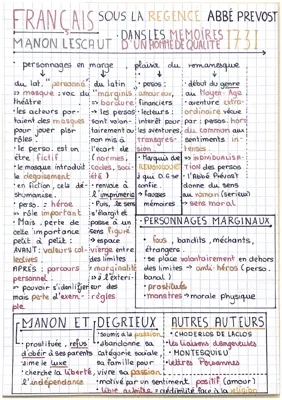 FRANÇAIS
SOUS LA REGENCE
ABBÉ PREVOST
MANON LESCAUT
DANS LES MÉMOIRES
D'UN HOMME DE QUALITÉ
1731
personnages en marge
plaisir du romanesque
du lat. "persona"
» masque : voc du
théâtre
» les acteurs por-
taient des masques
pour jouer plsr
rôles.
• le perso. est un
être fictif
• le masque introduit
le déguisement
» en fiction, cela dé-
shumanise.
• perso. : héros
» rôle important
• Mais : perte de
cette importance
petit à petit :
AVANT : valeurs col-
lectives
APRÈS : parcours
personnel
» pouvoir s'identifier
mais perte d'exem-
ple
du latin
"marginis"
» bordure
» les persos
sont volon-
tairement ou
non mis à
l'écart de
(normes,
codes, soci-
été)
• renvoie à
l'imprimerie
• Puis, le sens
s'élargit et
passe à un
sens figuré
» espace
vierge entre
des limites
» marginalité
» à l'extéri-
eur des
règles
• perso :
amoureux,
financiers
lecteurs :
intérêt pour
les aventures,
transgres-
sion
• Marquis de
RENONCOURT
à qui D.G se
confie.
» fausses
mémoires
• début du genre
au Moyen-Age
• aventure extra-
ordinaire vécue
par : persos. hors
du commun aux
sentiments in-
tenses
» individualisa-
tion des persos
• l'Abbé Prévost
donne du sens
au roman (sérieux)
» sens moral
PERSONNAGES MARGINAUX
• fous, bandits, méchants,
étrangers.
• se place volontairement en dehors
des limites → anti-héros (perso.
banal)
• prostituées
• monstres » morale physique
MANON ET DEGRIEUX
• prostituée, refus
d'obéir à ses parents
• aime le luxe
• cherche la liberté,
l'indépendance
• soumis à sa passion
• abandonne sa
catégorie sociale,
sa famille pour
vivre sa passion
• motivé par un sentiment positif (amour)
AUTRES AUTEURS
• CHODERLOS DE LACLOS
» les liaisons dangereuses
• MONTESQUIEU
» lettres Persannes